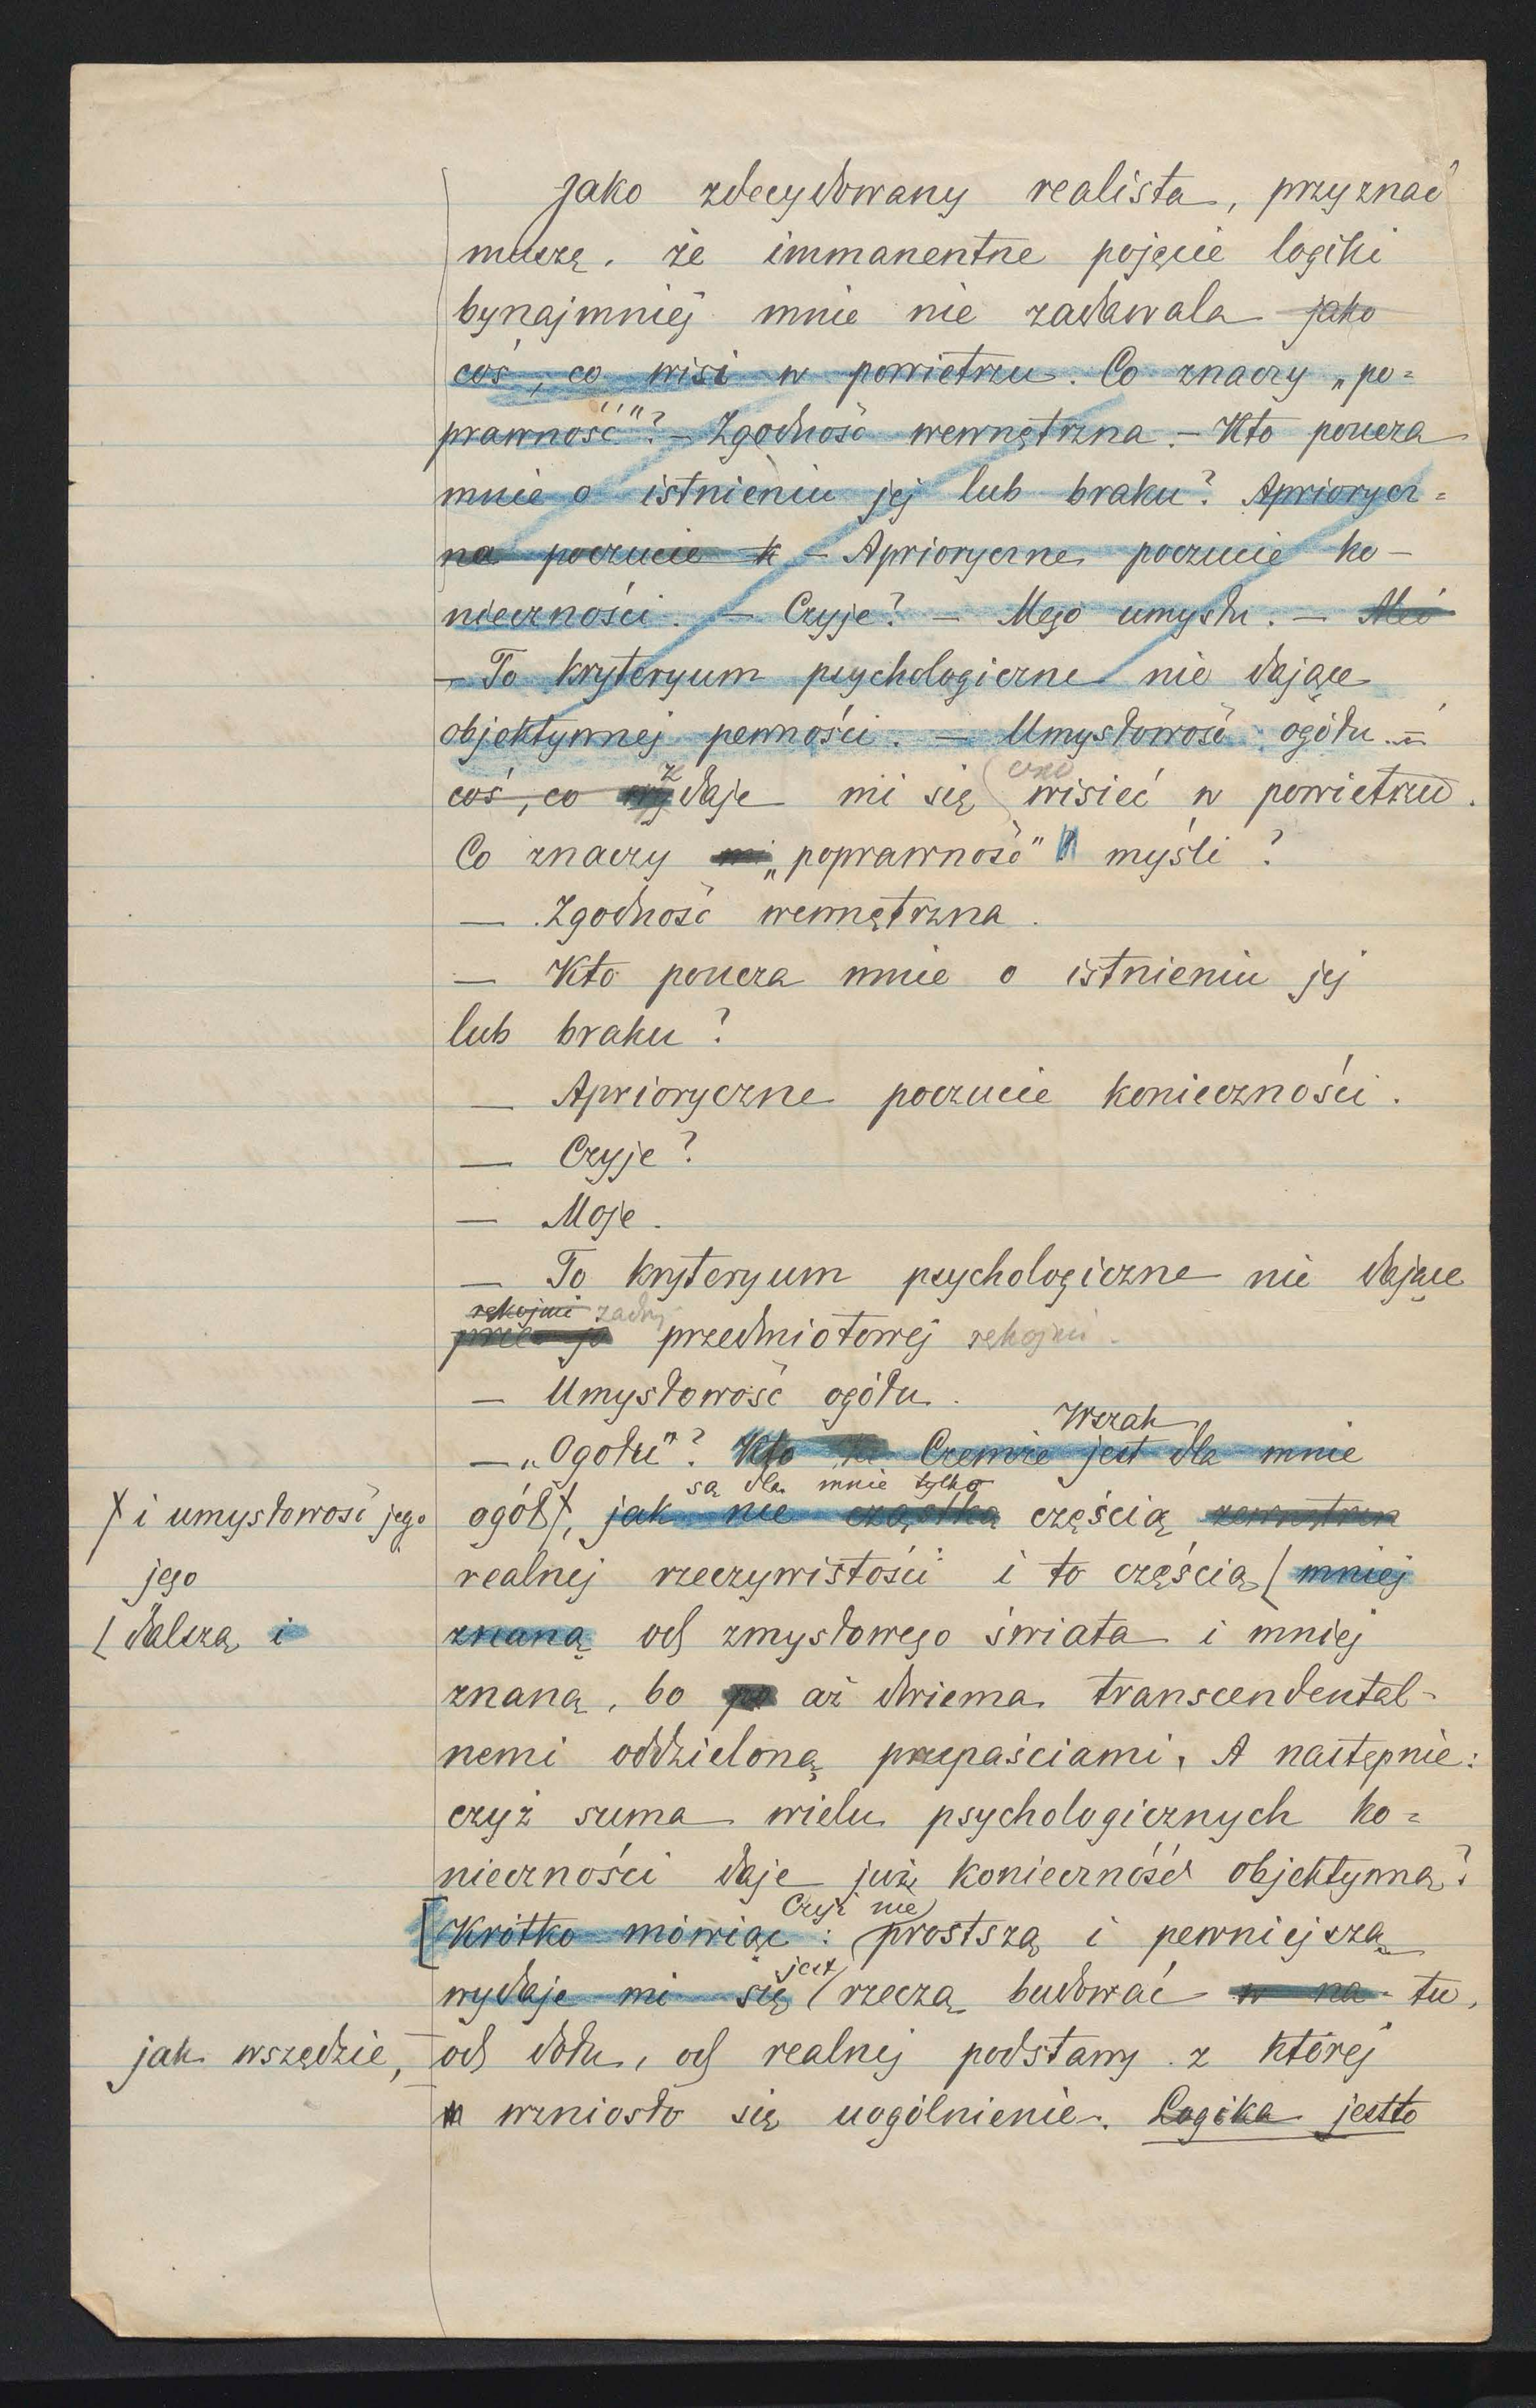 Jako zdecydowany realista, przyznać
muszę, że immanentne pojęcie logiki
bynajmniej mnie nie zadawala jako
coś, co wisi w powietrzu. Co znaczy „po=
prawność"? – Zgodność wewnętrzna. – Kto poucza
mnie o istnieniu jej lub braku? Apriorycz=
na poczucie k – Aprioryczne poczucie ko–
nieczności. – Czyje? – Mego umysłu. –
– To kryteryum psychologiczne nie dające
objektywnej pewności. – Umysłowość ogółu. –
z ono
coś, co wydaje mi się wisieć w powietrzu.
Co znaczy „poprawność" myśli?
– Zgodność wewnętrzna.
– Kto poucza mnie o istnieniu jej
lub braku?
– Aprioryczne poczucie konieczności.
– Czyje?
– Moje.
– To kryteryum psychologiczne nie dające
rękojmi żadnej
przedmiotowej rękojmi.
– Umysłowość ogółu.
Wszak
– „Ogółu"? Kto Czemże jest dla mnie
są dla mnie tylko
ogół, jak nie cząstką częścią zewnętrzn
X i umysłowość jego
realnej rzeczywistości i to częścią (mniej
jego
(dalszą i
znaną od zmysłowego świata i mniej
znaną, bo po aż dwiema transcendental–
nemi oddzieloną przepaściami. A następnie:
czyż suma wielu psychologicznych ko=
nieczności daje już konieczność objektywną?
Czyż nie
[Krótko mówiąc: prostszą i pewniejszą
jest
wydaje mi się (rzeczą budować w na tu,
jak wszędzie,
od dołu, od realnej podstawy z której
wzniosło się uogólnienie. Logika jestto